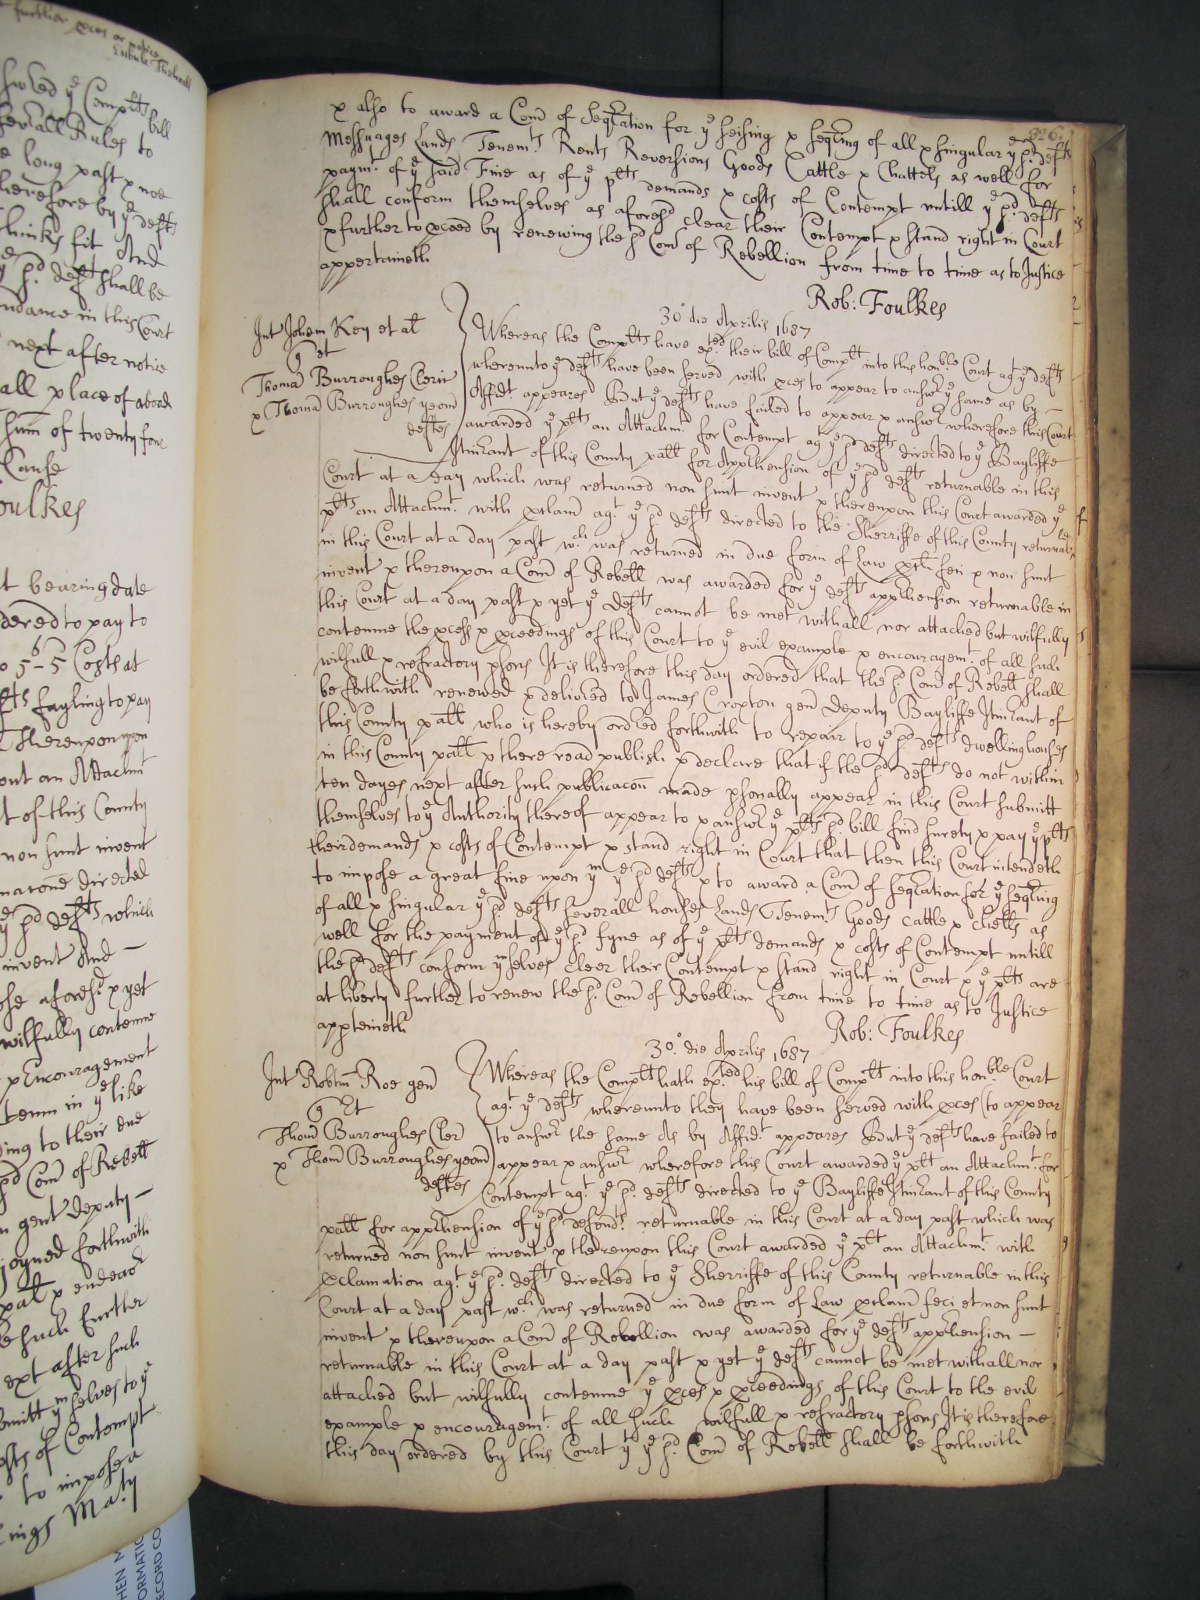 & also to award a Com̄ of Seqr̄ation for yᵉ seising & seqr̄ing of all & singular yᵉ sᵈ defᵗˢ
Messuages Lands Tenemᵗˢ Rents Reversions Goods Cattle & Chattels as well for
paymᵗ of yᵉ said Fine as of yᵉ pˡᵗˢ demands & costs of Contempt untill yᵉ sᵈ defᵗˢ
shall conform themselves as aforesᵈ clear their Contempt & stand right in Court
& further to p̱ceed by renewing the sᵈ Com̄ of Rebellion from time to time as to Justice
appertaineth
Rob: Foulkes
30° die Aprilis 1687
Int Johem Key et al̄
q et
Thomā Burroughes Cleric
& Thomā Burroughes yeom̄
deftes
Whereas the Complᵗˢ have exᵗᵉᵈ their bill of Complᵗ into this honᵇˡᵉ Court agᵗ yᵉ defᵗˢ
whereunto yᵉ defᵗˢ have been served with p̱ces to appear to answʳ yᵉ same as by
Affidᵗ appeares But yᵉ defᵗˢ have failed to appear & answʳ wherefore this Court
awarded yᵉ plᵗˢ an Attachmᵗ for Contempt agᵗ yᵉ sᵈ defᵗˢ directed to yᵉ Bayliffe
Itinr̄ant of this County pall̄ for App̱hension of yᵉ sᵈ defᵗˢ returnable in this
Court at a day which was returned non sunt invent & thereupon this Court awarded yᵉ
plᵗˢ an Attachmᵗ with p̱clam̄ agᵗ yᵉ sᵈ defᵗˢ directed to the Sherriffe of this County returnable
in this Court at a day past wᶜʰ was returned in due form of Law p̱cl̄ feci & non sunt
invent & thereupon a Com̄ of Rebell̄ was awarded for yᵉ defᵗˢ app̱hension returnable in
this Court at a day past & yet yᵉ Defᵗˢ cannot be met withall nor attached but wilfully
contemne the p̱cess & p̱ceedings of this Court to yᵉ evil example & encouragemᵗ of all such
wilfull & refractory p̱sons It is therefore this day ordered that the sᵈ Com̄ of Rebell̄ shall
be forthwith renewed & delivered to James Cropton gen̄ Deputy Bayliffe Itinr̄ant of
this County pall̄ who is hereby ordr̄ed forthwith to repair to yᵉ sᵈ defᵗˢ dwelling houses
in this County pall̄ & there read publish & declare that if the sᵈ defᵗˢ do not within
ten dayes next after such publicacōn made p̱sonally appear in this Court submitt
themselves to yᵉ Authority thereof appear to & answʳ yᵉ plᵗˢ sᵈ bill find surety & pay yᵉ plᵗˢ
their demands & costs of Contempt & stand right in Court that then this Court intendeth
to impose a great fine upon yᵐ yᵉ sᵈ defᵗˢ & to award a Com̄ of Seqr̄ation for yᵉ seqr̄ing
of all & singular yᵉ sᵈ defᵗˢ severall houses Lands Tenemᵗˢ Goods cattle & chells̄ as
well for the payment of yᵉ sᵈ fyne as of yᵉ plᵗˢ demands & costs of Contempt untill
the sᵈ defᵗˢ conform yᵐselves cleer their Contempt & stand right in Court & yᵉ plᵗˢ are
at liberty further to renew the sᵈ Com̄ of Rebellion from time to time as to Justice
app̱teineth
Rob: Foulkes
30° die Aprilis 1687
Int Robtum̄ Roe gen̄
q Et
Thom̄ Burroughes Cler̄
& Thom̄ Burroughes yeom̄
deftes
Whereas the Complᵗ hath exᵗᵉᵈ his bill of Complᵗ into this honᵇˡᵉ Court
agᵗ yᵉ defᵗˢ whereunto they have been served with p̱ces to appear
to answʳ the same As by Affidᵗ appeares But yᵉ defᵗˢ have failed to
appear & answʳ wherefore this Court awarded yᵉ plᵗ an Attachmᵗ for
Contempt agᵗ yᵉ sᵈ defᵗˢ directed to yᵉ Bayliffe Itinr̄ant of this County
pall̄ for app̱hension of yᵉ sᵈ defendᵗˢ returnable in this Court at a day past which was
returned non sunt invent & thereupon this Court awarded yᵉ plᵗ an Attachmᵗ with
p̱clamation agᵗ yᵉ sᵈ defᵗˢ directed to yᵉ Sherriffe of this County returnable in this
Court at a day past wᶜʰ was returned in due form of Law p̱clam̄ feci et non sunt
invent & thereupon a Com̄ of Rebellion was awarded for yᵉ defᵗˢ app̱hension —
returnable in this Court at a day past & yet yᵉ defᵗˢ cannot be met withall nor
attached but wilfully contemne yᵉ p̱ces & p̱ceedings of this Court to the evil
example & encouragemᵗ of all such wilfull & refractory p̱sons It is therefore
this day ordered by this Court yᵗ yᵉ sᵈ Com̄ of Rebell̄ shall be forthwith